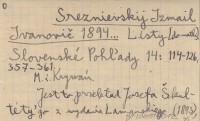 Sreznievskij Izmail
Ivanovič 1894... Listy
Slovenské Pohľady 14: 114-126,
357-361.
M. i. Krywań
Jest to przekład Jozefa Škul-
téty'go z wydania Lamanskiego (1893)